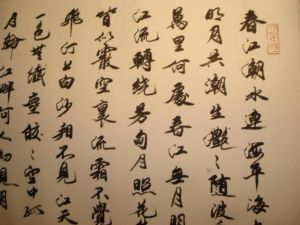 春江潮水連海平海上
明月共潮生灩〻隨波千
萬里何處春江無月明
江流轉繞芳甸月照花
皆似霰空裏流霜不覺
飛汀上白沙看不見江天
一色無纖塵皎〻空中孤
月輪江畔何人初見月